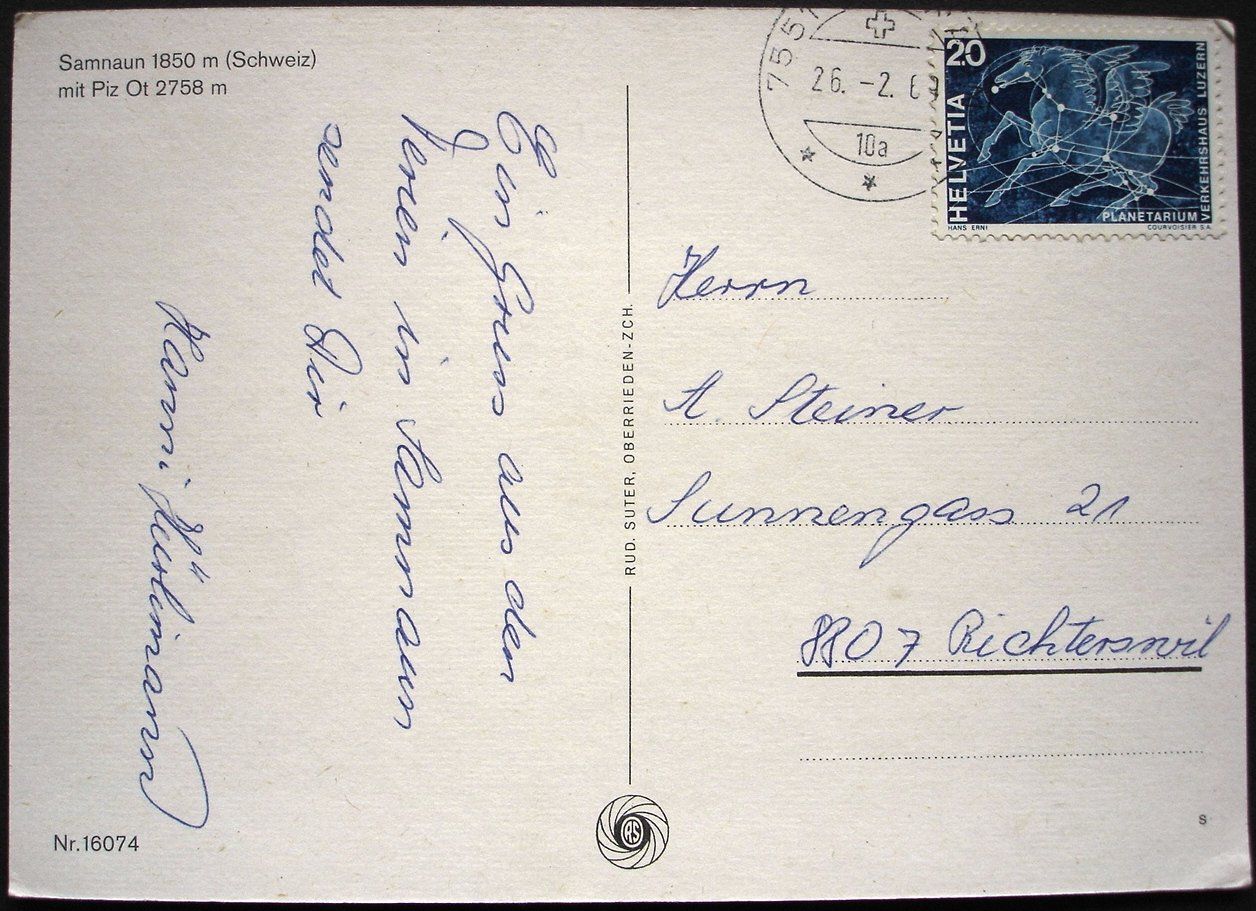 Samnaun 1850 m (Schweiz)
mit Piz Ot 2758 m
Ein Gruss aus den
Ferien in Samnaun
sendet Dir
Hanni Hürlimann
Nr.16074
RUD. SUTER, OBERRIEDEN-ZCH.
RS
755
26. -2. 6
10a
20
HELVETIA
VERKEHRSHAUS LUZERN
PLANETARIUM
HANS ERNI
COURVOISIER S.A.
Herrn
A. Steiner
Sunnengass 21
8807 Richterswil
s